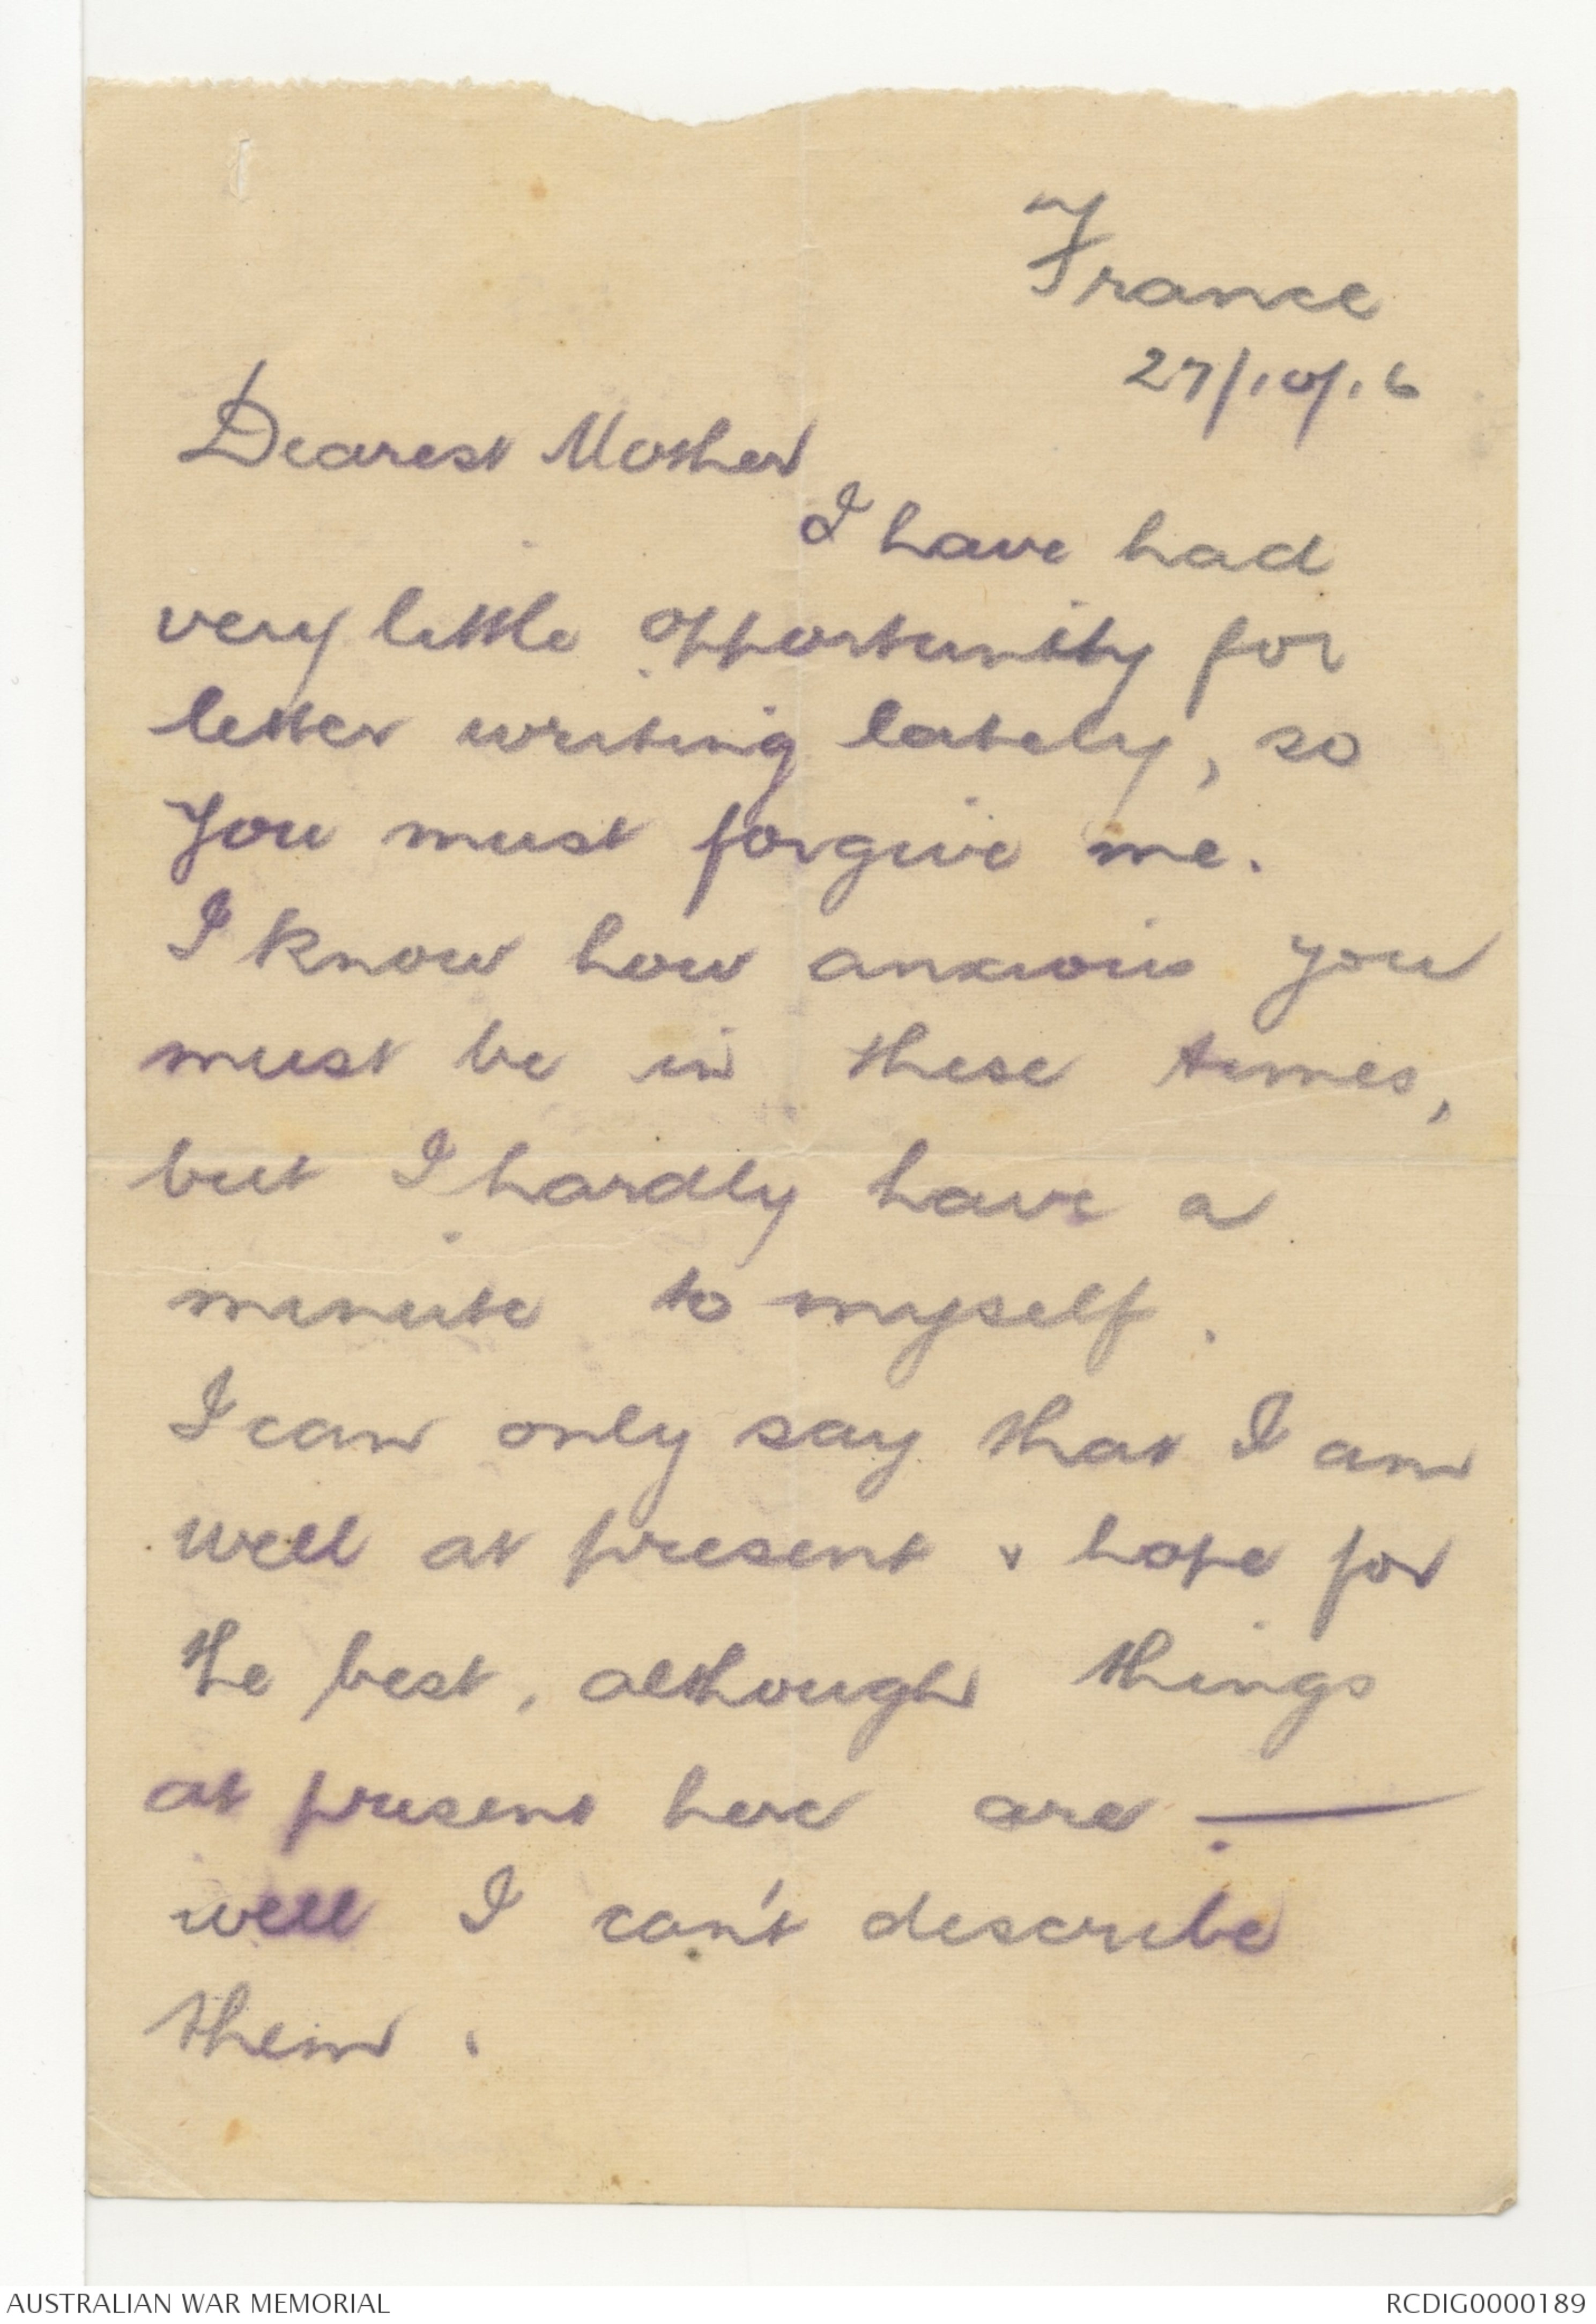 France
27/10/16
Dearest Mother
I have had
very little opportunity for
letter writing lately, so
you must forgive me.
I know how anxious you
must be in these times,
but I hardly have a
minute to myself.
I can only say that I am
well at present & hope for
the best, although things
at present here are —
well I can't describe
them.
AUSTRALIAN WAR MEMORIAL
RCDIG0000189